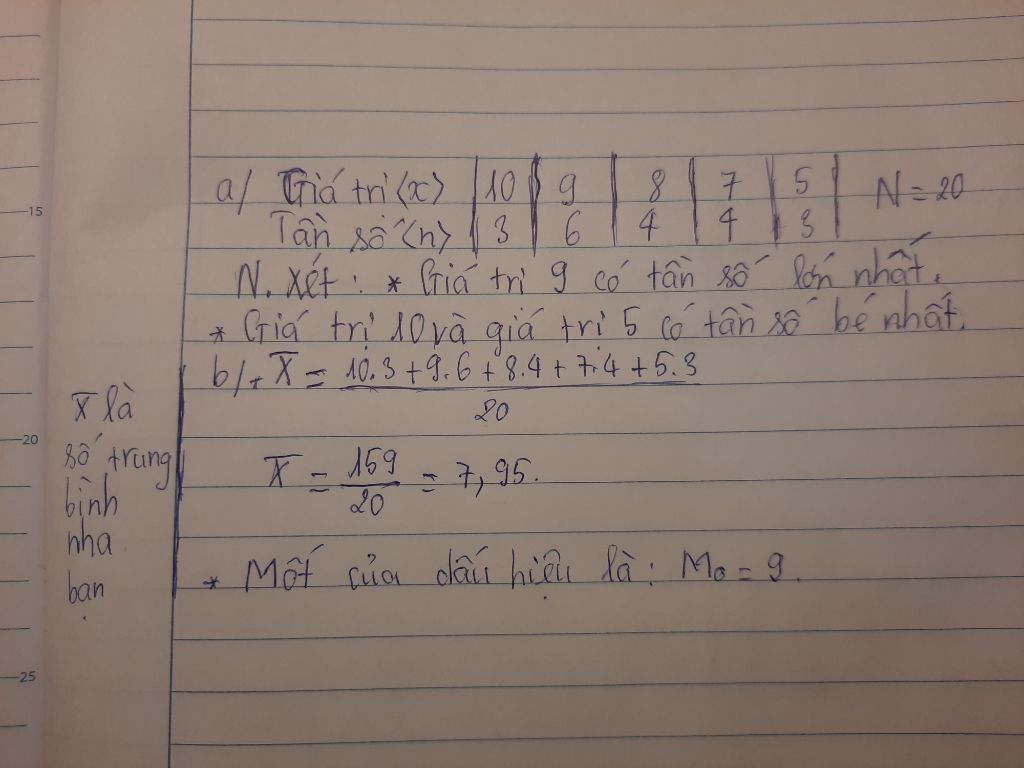 15
20
25
a/ Giá trị <x> | 10 | 9 | 8 | 7 | 5 | N = 20
Tần số <n> | 3 | 6 | 4 | 4 | 3 |
N. xét : * Giá trị 9 có tần số lớn nhất.
* Giá trị 10 và giá trị 5 có tần số bé nhất.
b/+ X̄ = 10.3 + 9.6 + 8.4 + 7.4 + 5.3
20
X̄ = 159/20 = 7,95.
* Mốt của dấu hiệu là : M₀ = 9.
X̄ là
số trung
bình
nha
bạn